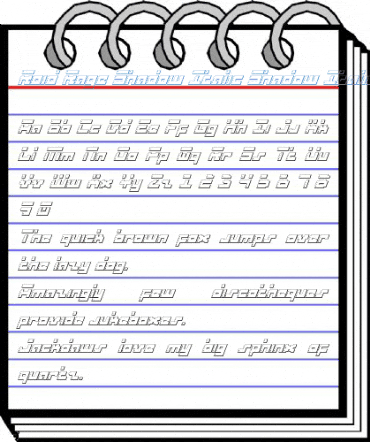 Raid Rage Shadow Italic Shadow Itali
Aa Bb Cc Dd Ee Ff Gg Hh Ii Jj Kk
Ll Mm Nn Oo Pp Qq Rr Ss Tt Uu
Vv Ww Xx Yy Zz 1 2 3 4 5 6 7 8
9 0
The quick brown fox jumps over
the lazy dog.
Amazingly few discotheques
provide jukeboxes.
Jackdaws love my big sphinx of
quartz.